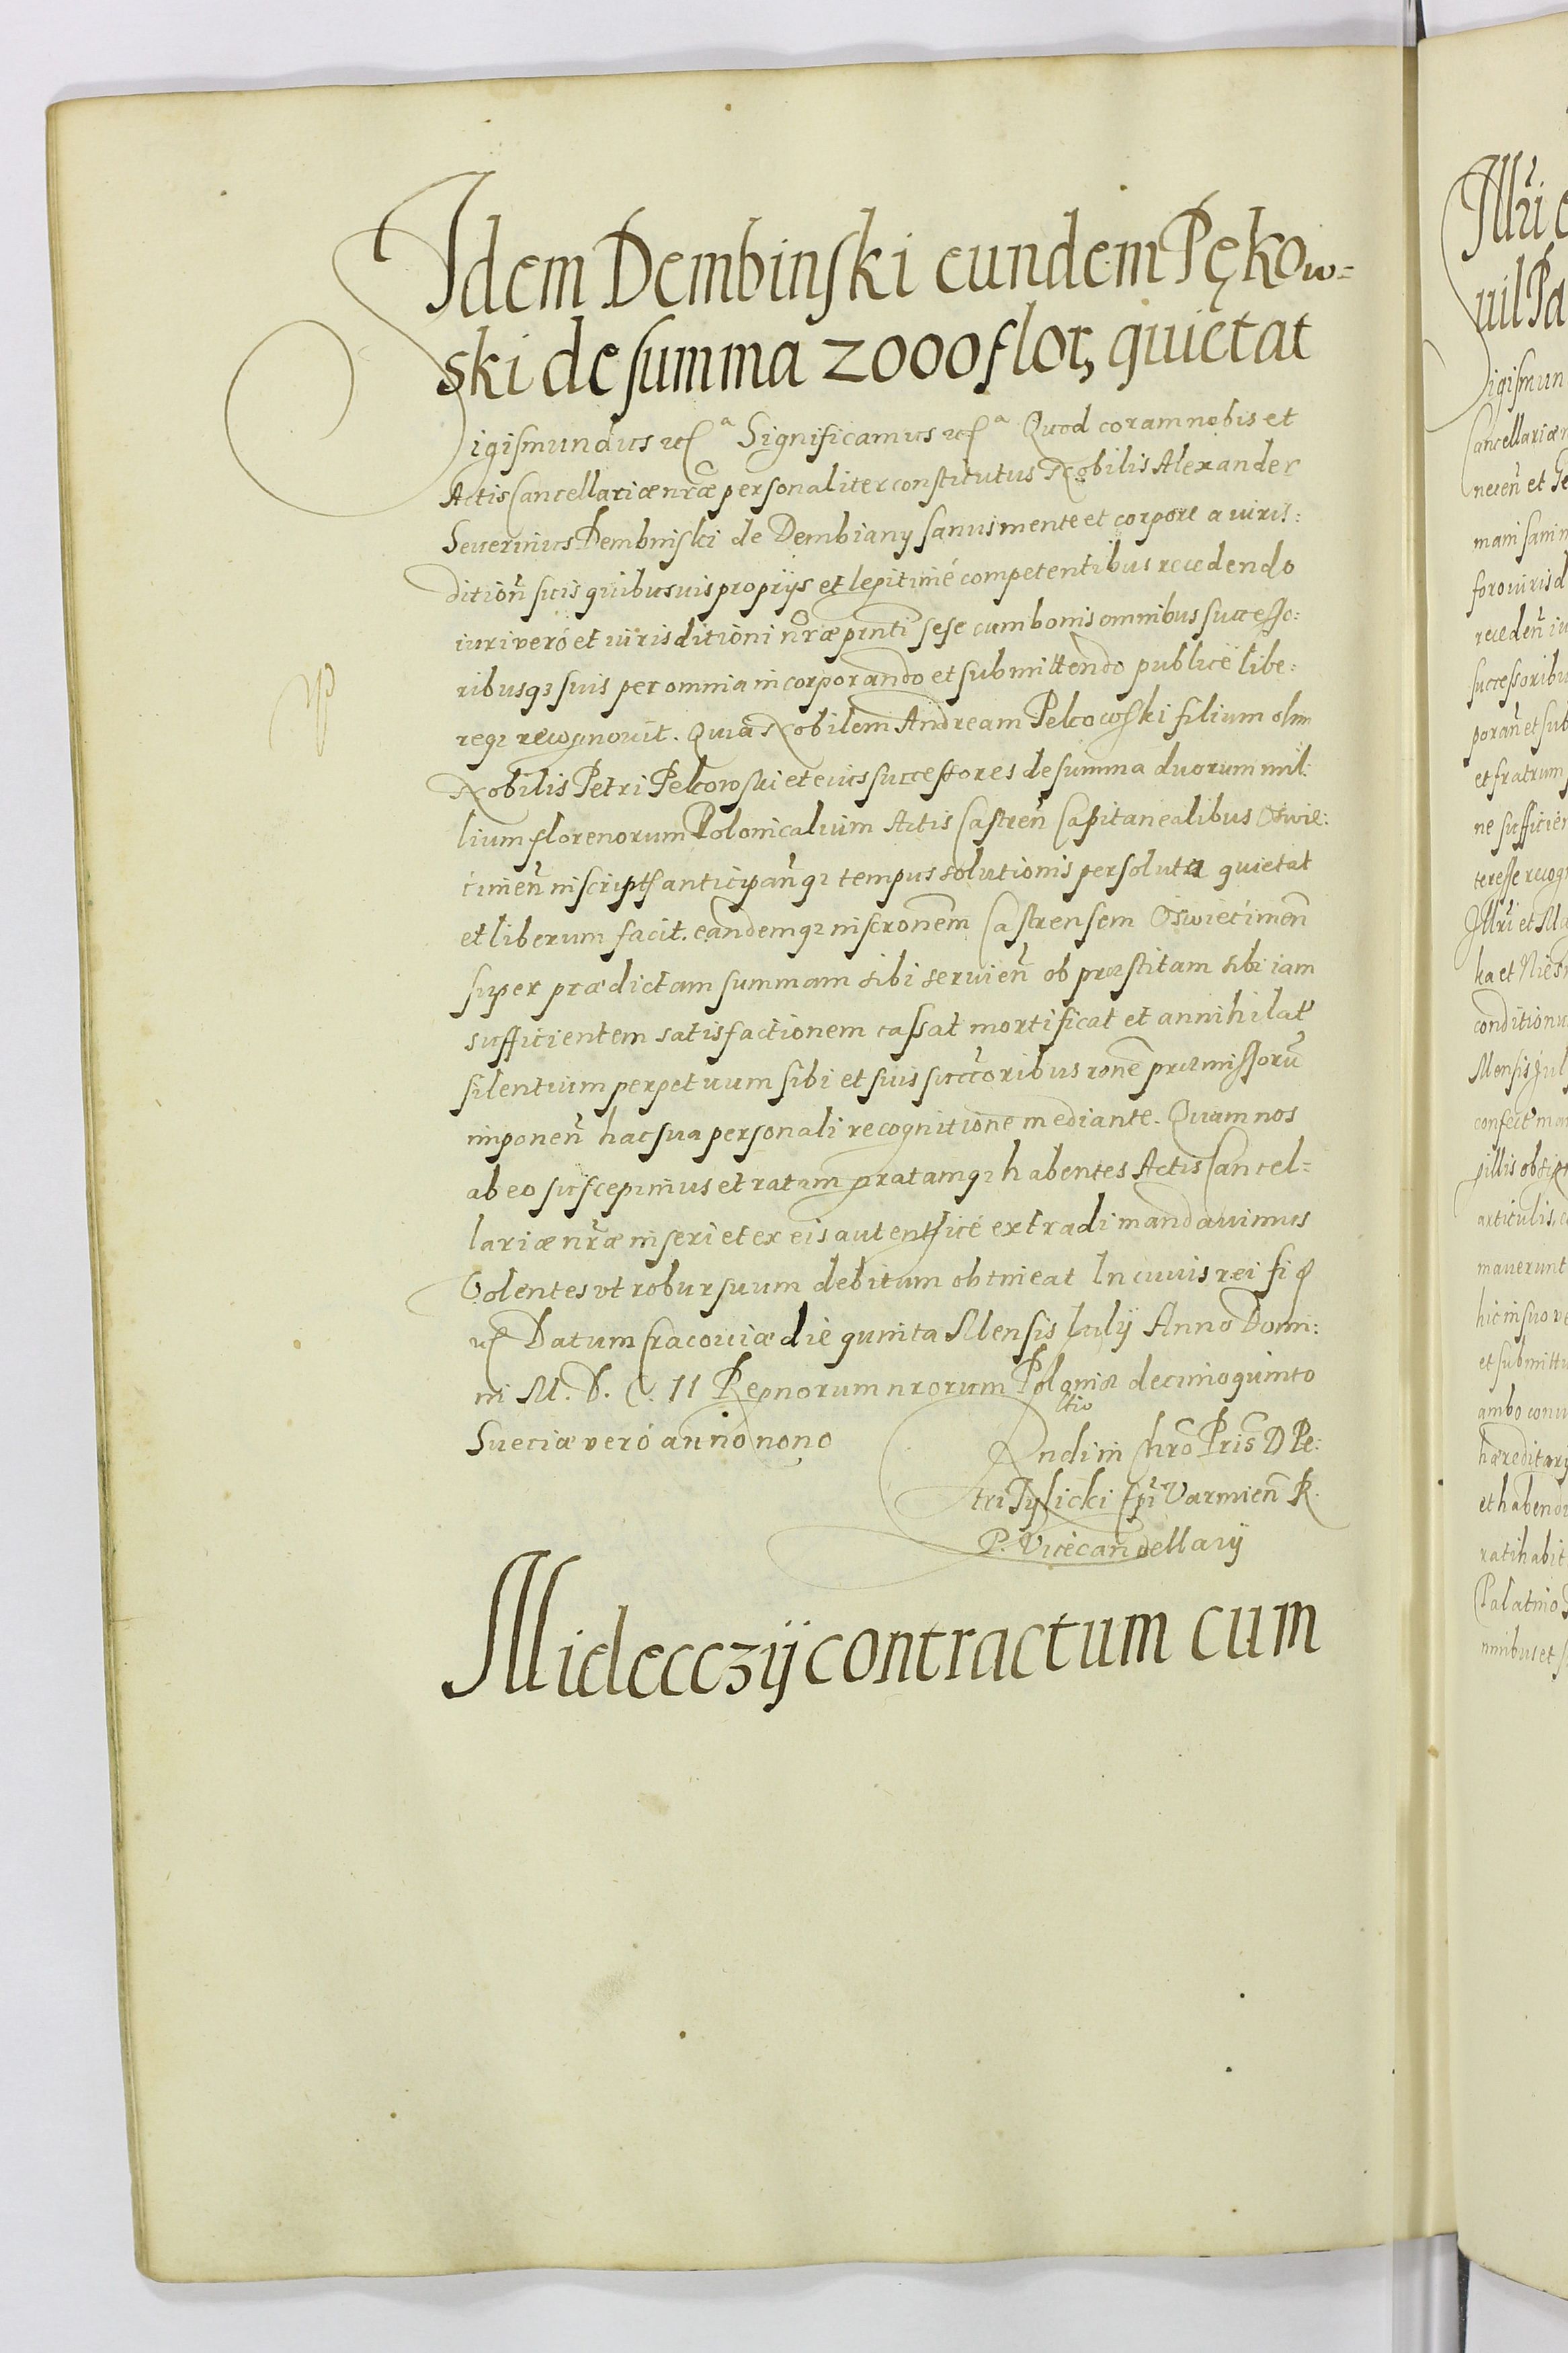 Idem Dembinski eundem Pękow=
ski de summa 2000 flor, quietat
Sigismundus etc a Significamus etc a Quod coram nobis et
Actis Cancellariæ nr̃æ personaliter constitutus Nobilis Alexander
Seuerinus Dembinski de Dembiany sanus mente et corpore a iuris:
dition̄ suis quibusuis proprijs et legitimé competentibus recedendo
iuri veró et iurisditioni nr̃æ pnti sese cum bonis omnibus successo:
ribusq3 suis per omnia incorporando et submittendo publicé libe:
req3 recognouit. Quia Nobilem Andream Pelcowski filium olim
Nobilis Petri Pelcowski et eius successores de summa duorum mil:
lium florenorum Polonicalium Actis Castren̄ Capitanealibus Oswie:
cimen̄ inscript anticipan̄q3 tempus solutionis persoluta quietat
et liberum facit. eandemq3 inscronem Castrensem Oswiecimen̄
super prædictam summam sibi seruien̄ ob præstitam sibi iam
sufficientem satisfactionem cassat mortificat et annihilat
silentium perpetuum sibi et suis succoribus rone præmissorũ
imponen̄ hac sua personali recognitione mediante. Quam nos
ab eo suscepimus et ratam gratamq3 habentes Actis Cancel=
lariæ nr̃æ inseri et ex eis autenticé extradi mandauimus
Volentes vt robur suum debitum obtineat In cuius rei fid
etc Datum Cracouiæ die quinta Mensis Iulij Anno Domi:
ni M. D. C. II Regnorum nrorum Poloniæ decimo quinto
Sueciæ veró anno nono
Rndi in Chro Pris D Pe:
tri Tylicki Epi Varmien̄ R.
P. Vicecancellarij
Mielecczij contractum cum
Illri
uil Pa
Sigismun
Cancellariæ
necen̄ et Ge
mani sani
foro iurisd
receden̄ iu
successoribu
poran̄ et sub
et fratrum
ne sufficien
teresse recog
Illri et Ma
ka et Nies
conditionu
Mensis Iul
confect man
pillis
articulis
mauerunt
hic in suo ve
et submittu
ambo conu
hæreditary
et habend
ratihabit
Palatino